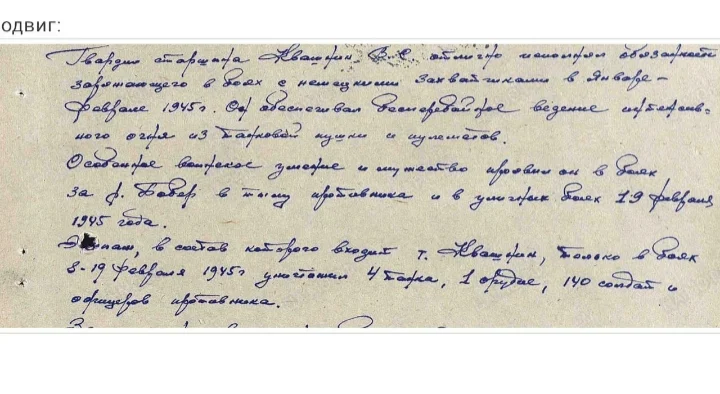 одвиг:
Гвардии старшина Квашнин В.С. отлично исполнял обязанности
заряжающего в боях с немецкими захватчиками в Январе -
Феврале 1945 г. Он обеспечивал бесперебойное ведение интенсив-
ного огня из танковой пушки и пулеметов.
Особенное воинское умение и мужество проявил он в боях
за р. Бобер в тылу противника и в уличных боях 19 февраля
1945 года.
Экипаж, в состав которого входит т. Квашнин, только в боях
8-19 февраля 1945 г уничтожил 4 танка, 1 орудие, 140 солдат и
офицеров противника.